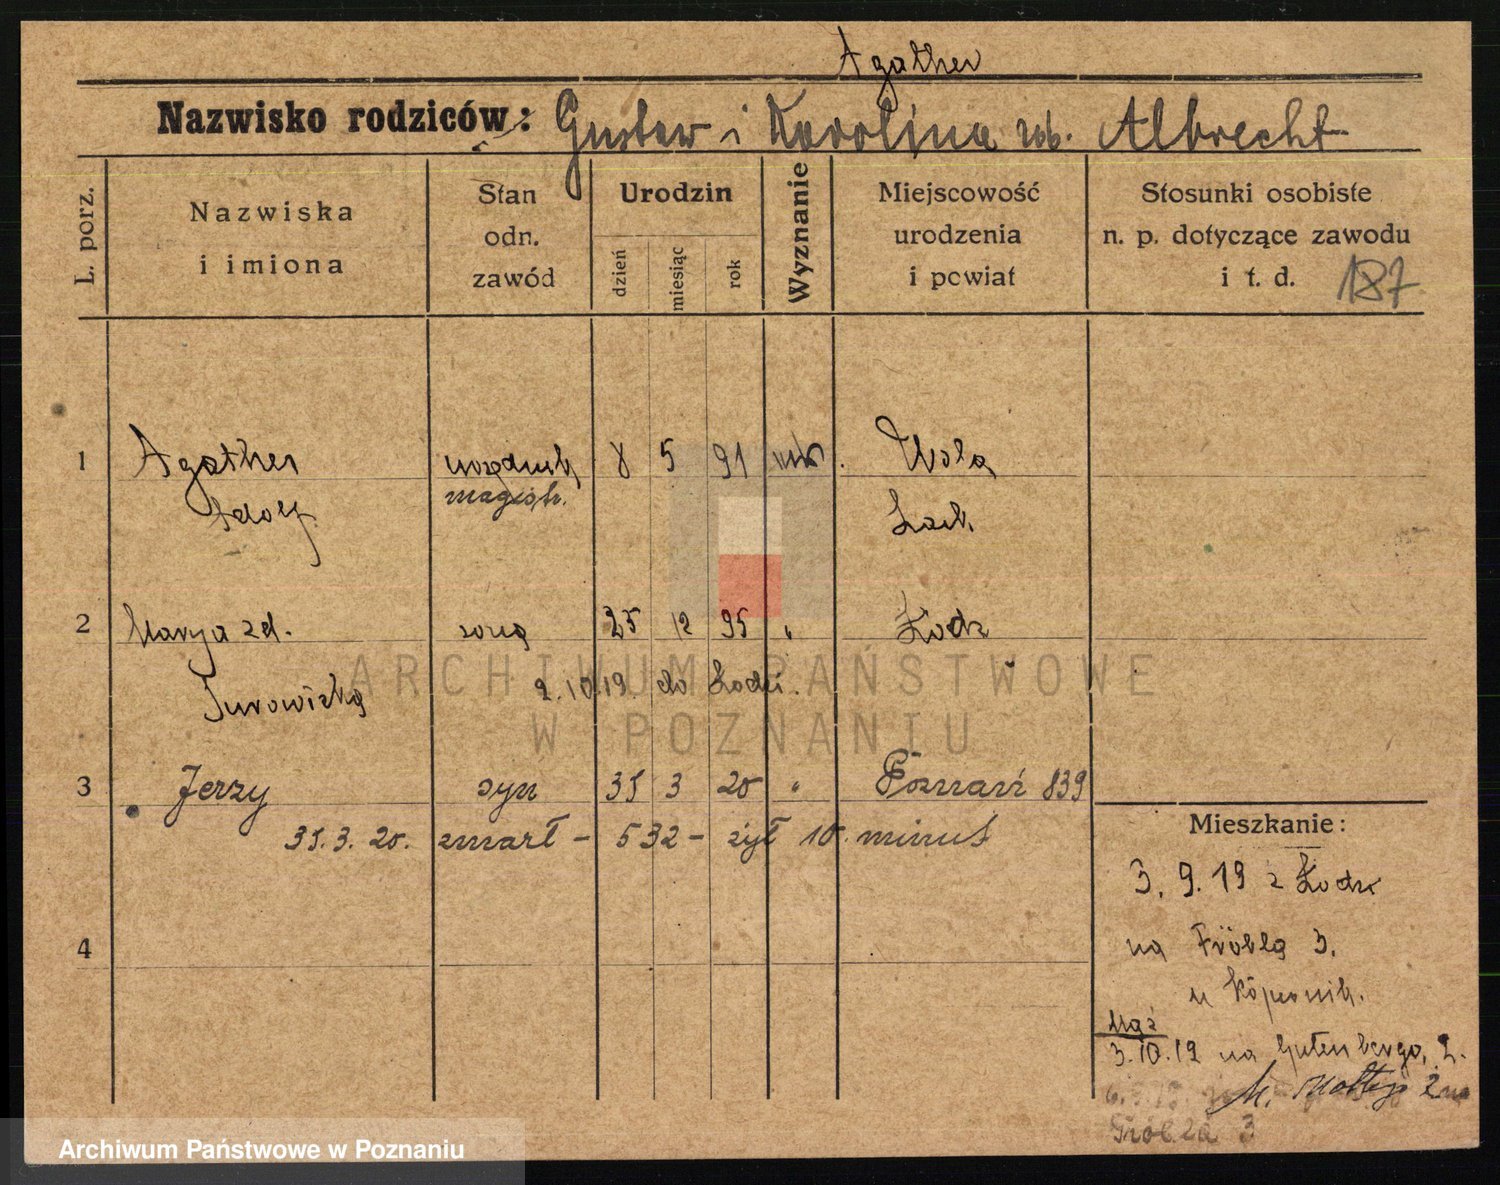 Agather
Nazwisko rodziców: Gustaw i Karolina rob. Albrecht
L. porz.
Nazwiska
i imiona
Stan
odn.
zawód
Urodzin
dzień
miesiąc
rok
Wyznanie
Miejscowość
urodzenia
i powiat
Stosunki osobiste
n. p. dotyczące zawodu
i t. d.
187
1 Agather urzędnik 8 5 91 Wola
Adolf magistr. Łask.
2 Marya zd. żona 25 12 95 " Łodz
Jurowiczką 2.10.19. do Łodzi.
3 Jerzy syn 31 3 20 " Poznań 839
31.3.20. zmarł - 532 - żył 10 minut
4
Mieszkanie:
3.9.19 z Łodzi
na Fröbla 3.
u Kopernik.
Mąż
3.10.19 na Gutenberga, 2.
Grobla 3
ARCHIWUM PAŃSTWOWE
W POZNANIU
Archiwum Państwowe w Poznaniu